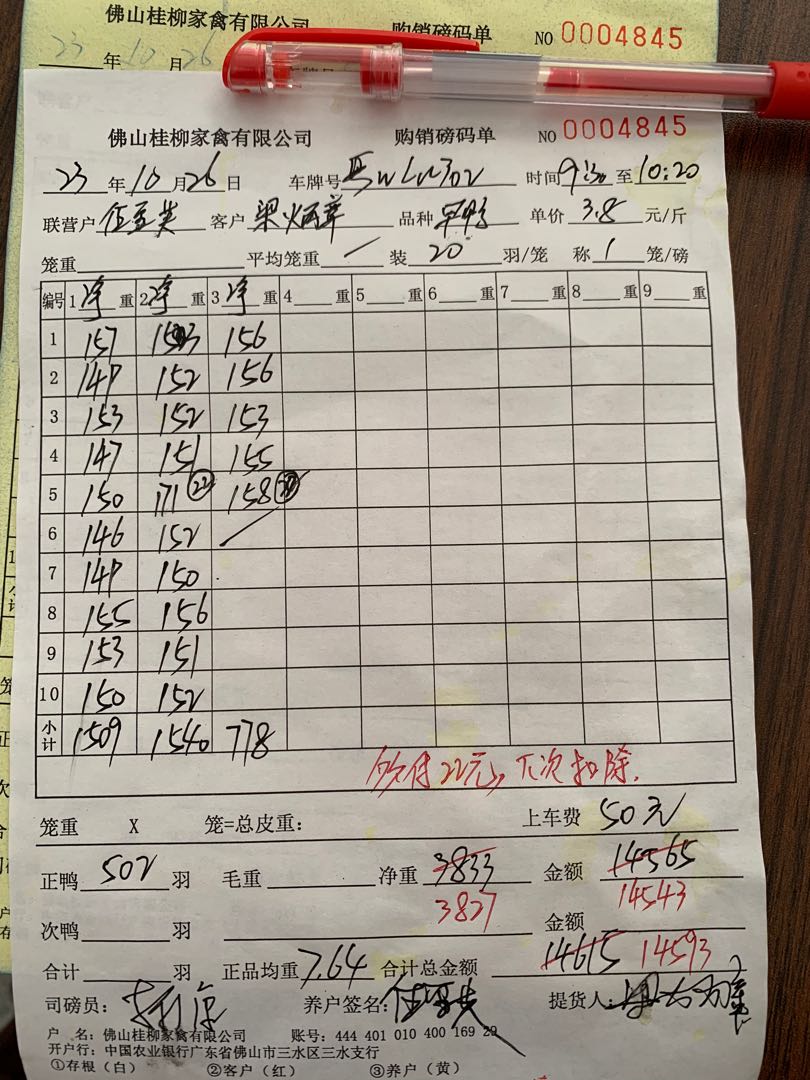 佛山桂柳家禽有限公司 购销磅码单 NO 0004845
23年10月26
佛山桂柳家禽有限公司 购销磅码单 NO 0004845
23年10月26日 车牌号 时间 至10:20
联营户 客户 品种 单价3.8元/斤
笼重 平均笼重/装20羽/笼 称1笼/磅
编号 1净重 2净重 3净重 4重 5重 6重 7重 8重 9重
1 157 153 156
2 149 152 156
3 153 152 153
4 147 151 155
5 150 171 (22) 158
6 146 152 /
7 149 150
8 155 156
9 153 151
10 150 152
小计 1509 1540 778
欠付22元,下次扣除.
笼重 X 笼=总皮重: 上车费 50元
正鸭502羽 毛重 净重3833 金额14565
3827 14543
次鸭 羽 金额
合计 羽 正品均重7.64 合计总金额14615 14593
司磅员: 养户签名: 提货人:
户 名: 佛山桂柳家禽有限公司 账号: 444 401 010 400 169 29
开户行: 中国农业银行广东省佛山市三水区三水支行
①存根(白) ②客户(红) ③养户(黄)